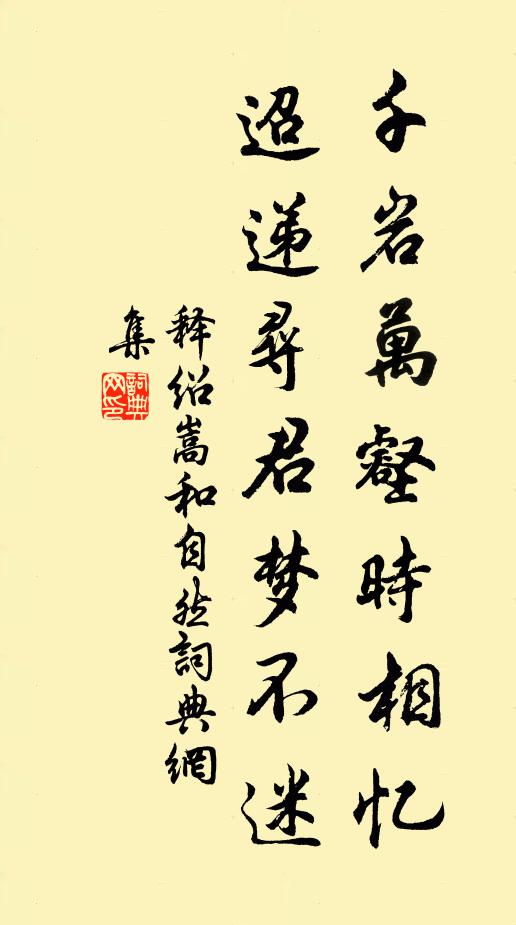 千岩萬壑時相忆
迢递尋君梦不迷
释绍嵩和自然詞典網
集
詞典
网印